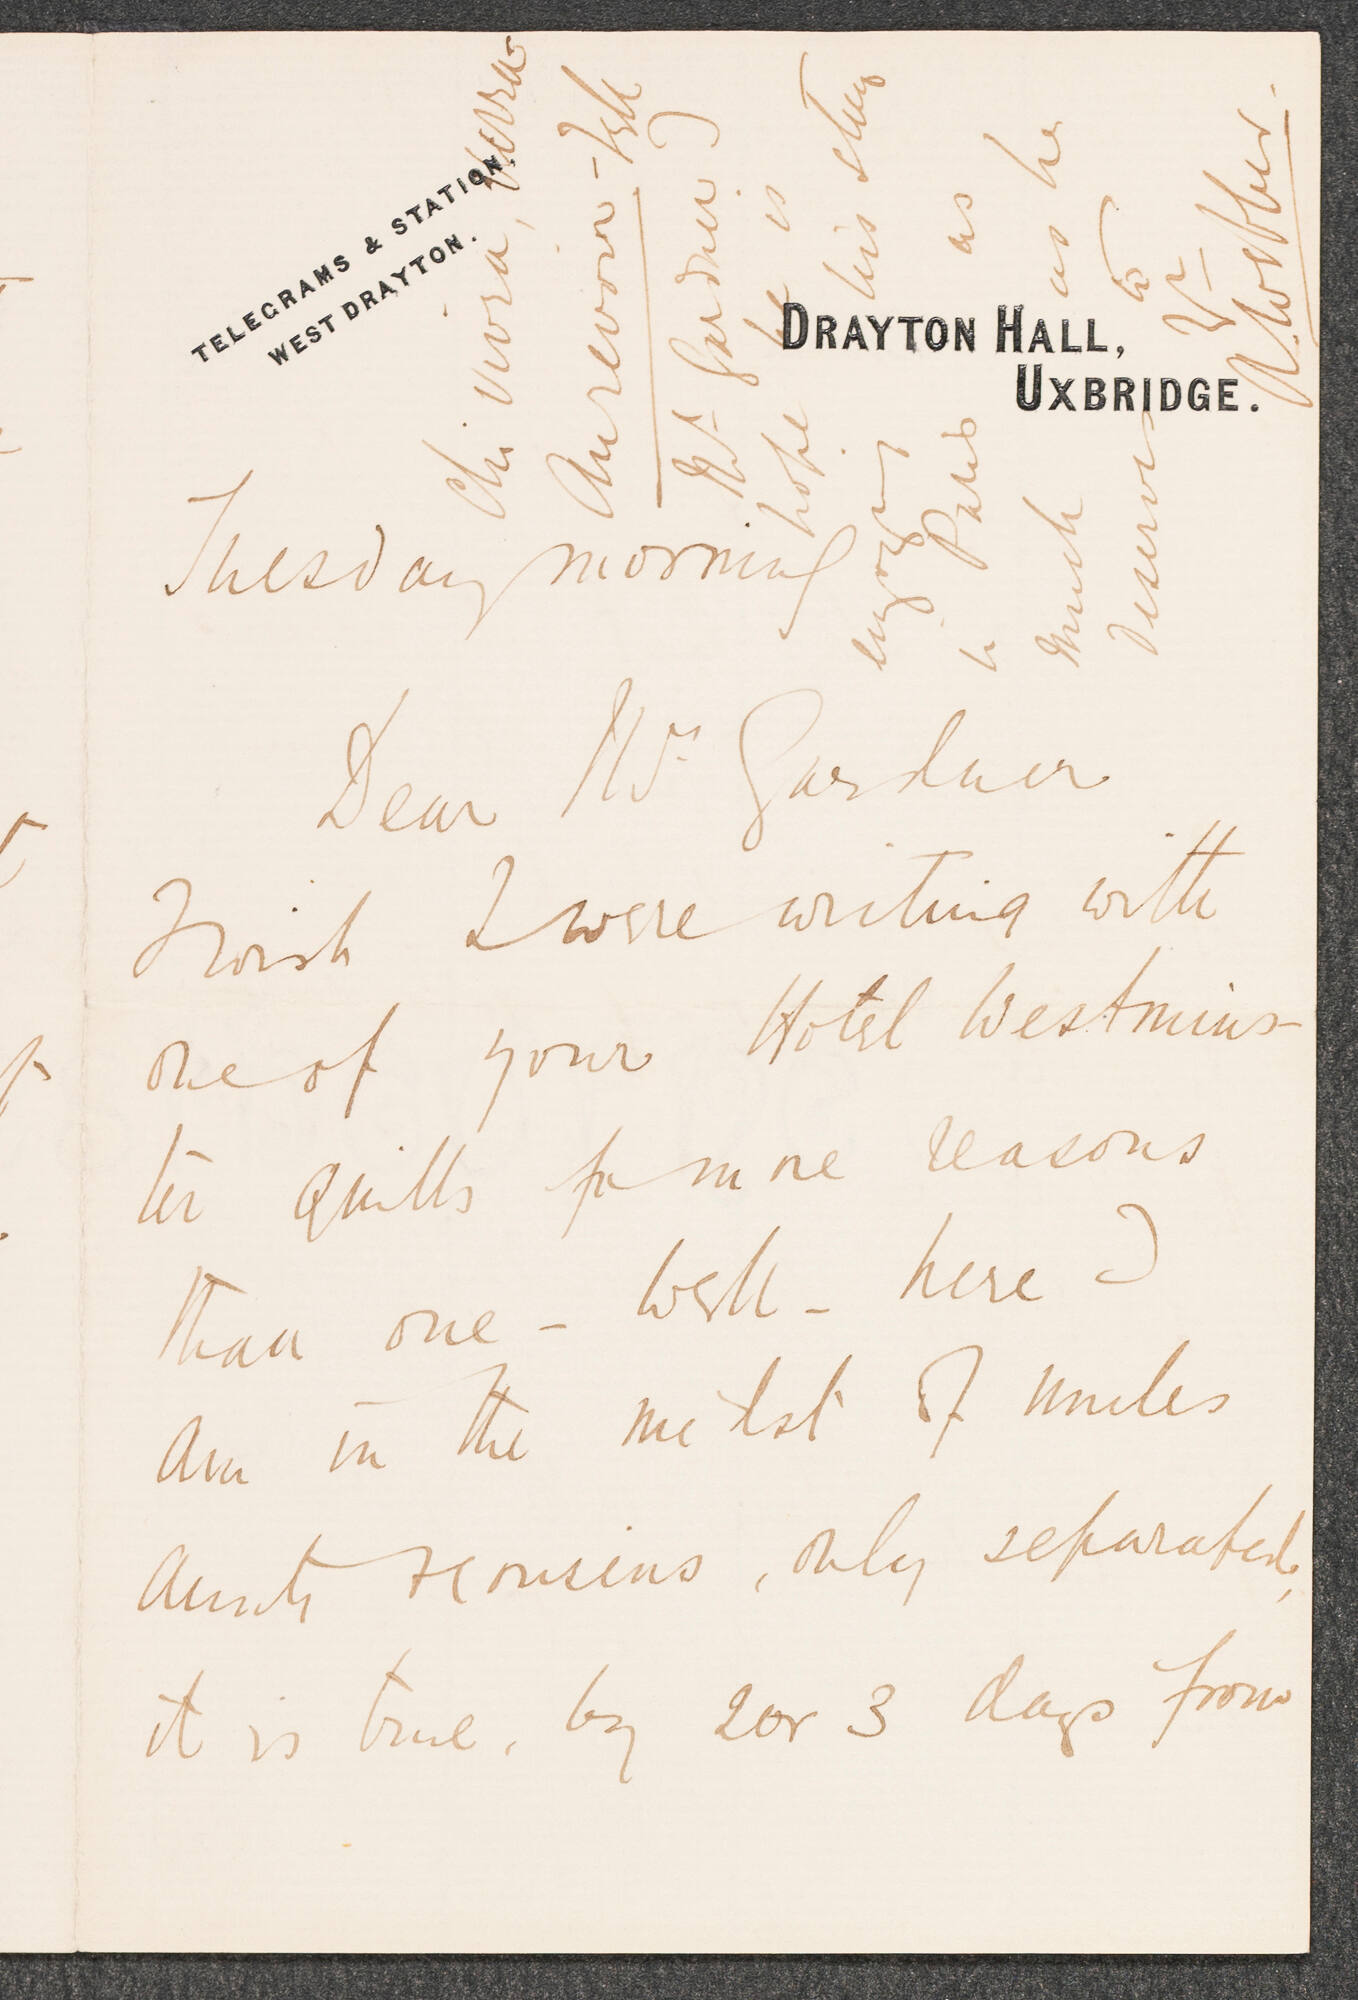 TELEGRAMS & STATION.
WEST DRAYTON.
DRAYTON HALL,
UXBRIDGE.
Tuesday morning
Dear Mrs Gardner
I wish I were writing with
one of your Hotel Westmins-
ter quills for more reasons
than one - Well - here I
am in the midst of uncles
aunts & cousins, only separated,
it is true, by 2 or 3 days from
Chi vivra, verra-
Au revoir - Tell
Mr Gardner I
hope he is
enjoying his stay
in Paris as
much as he
deserves to
Yrs
R. Webber.